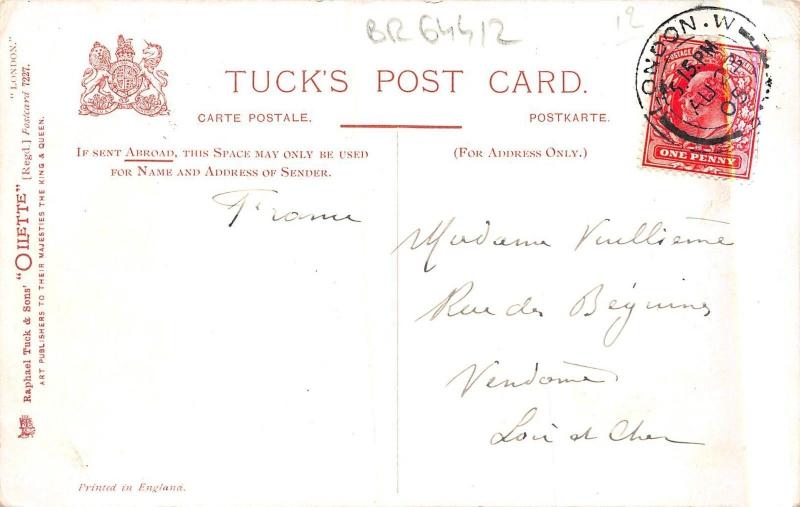 BR 64412
19
TUCK'S POST CARD.
CARTE POSTALE.
POSTKARTE.
IF SENT ABROAD, THIS SPACE MAY ONLY BE USED
FOR NAME AND ADDRESS OF SENDER.
(FOR ADDRESS ONLY.)
France
Madame Vuillième
Rue des Béguines
Vendome
Loir et Cher
LONDON. W
5.15 PM
AU
05
POSTAGE
ONE PENNY
"LONDON."
Raphael Tuck & Sons' "OILETTE" [Regd.] Postcard 7227.
ART PUBLISHERS TO THEIR MAJESTIES THE KING & QUEEN.
Printed in England.